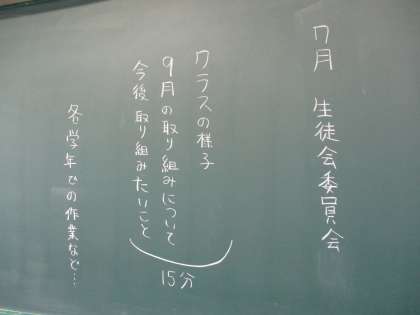 7月 生徒会委員会
クラスの様子
9月の取り組みについて
今後取り組みたいこと
15分
各学年での作業など…